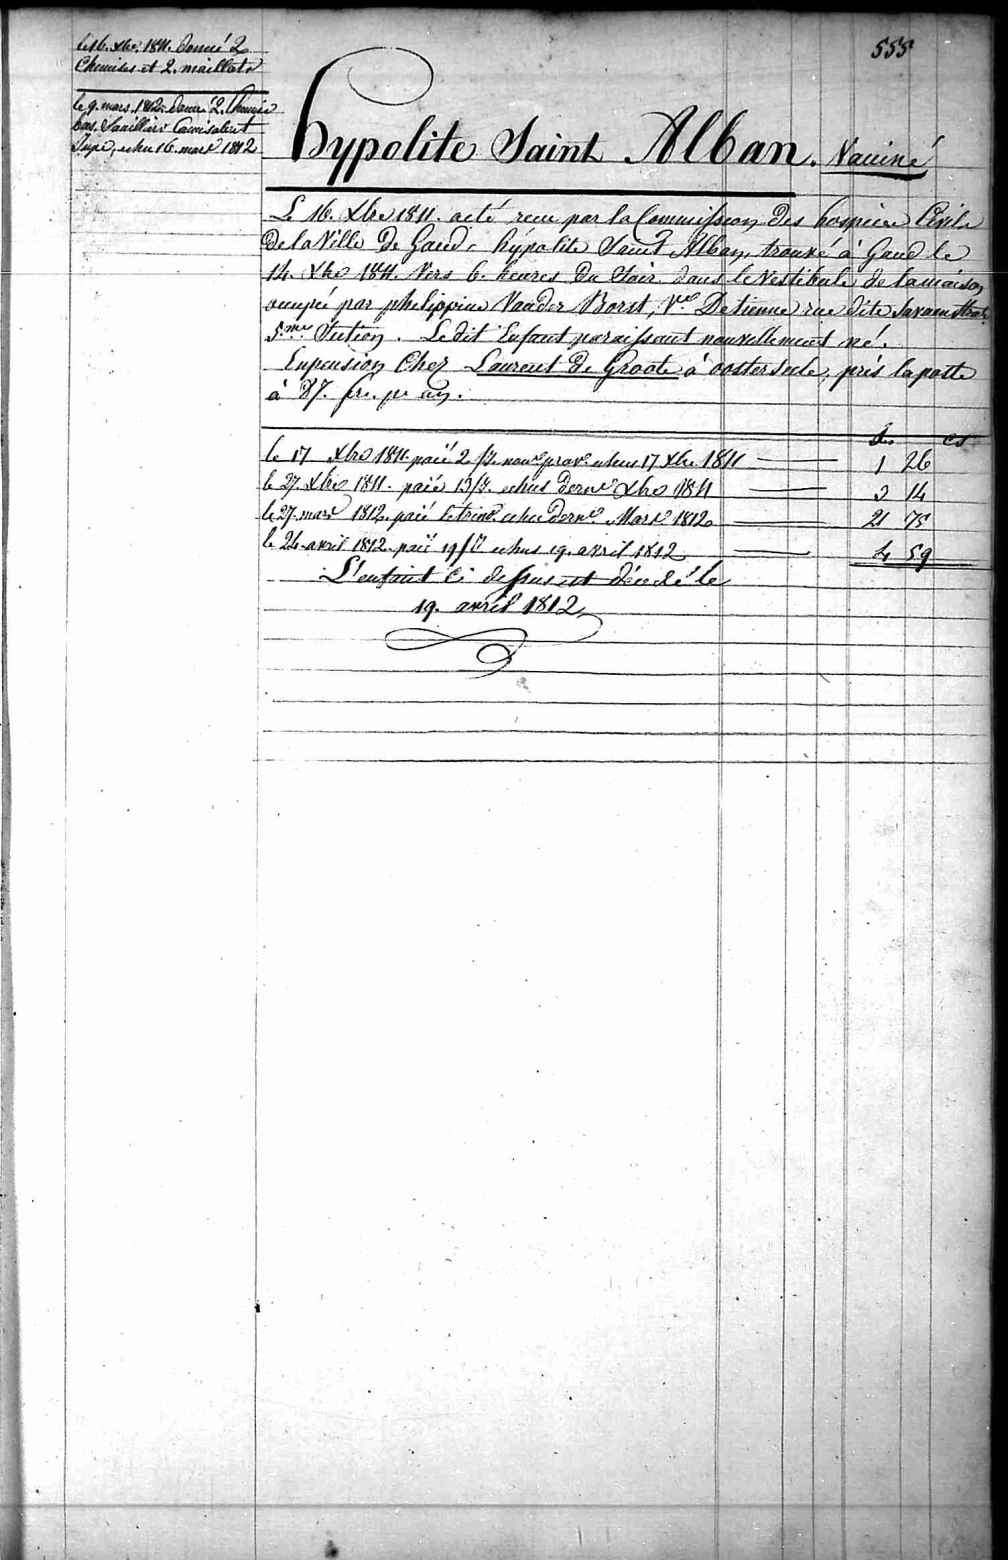 555
le 16. Xbre. 1811. donné 2
Chemises et 2. maillots
le 9. mars. 1812. donné 2. Chemise
bas, Camisole et
Jupe, echu 16. mars 1812
hypolite Saint Alban. Vaciné
Le 16. Xbre 1811. a été recu par la Commission des hospices Civils
de la Ville de Gand, hypolite Saint Alban, trouvé à Gand le
14. Xbre 1811. Vers 6. heures du Soir dans le Vestibule de la maison
occupée par phelippine Vander Borst, Ve. Detienne rue dite
5.me Section. Le dit Enfant paraissant nouvellement né.
En pension Chez Laurent De Groote à oosterseele, près la
à 87. fr. pr an.
fr. cs
le 17 Xbre 1811. paié 2 echus 17 Xbre 1811 — 1 26
le 27. Xbre 1811. paié 13 echus dernr Xbre 1811 — 3 14
le 27. mars 1812. paié le trimr echu dernr. Mars 1812 — 21 75
le 24. avril 1812. paié 19 echus 19. avril 1812 — 4 59
L'enfant ci dessus est décedé le
19. avril 1812